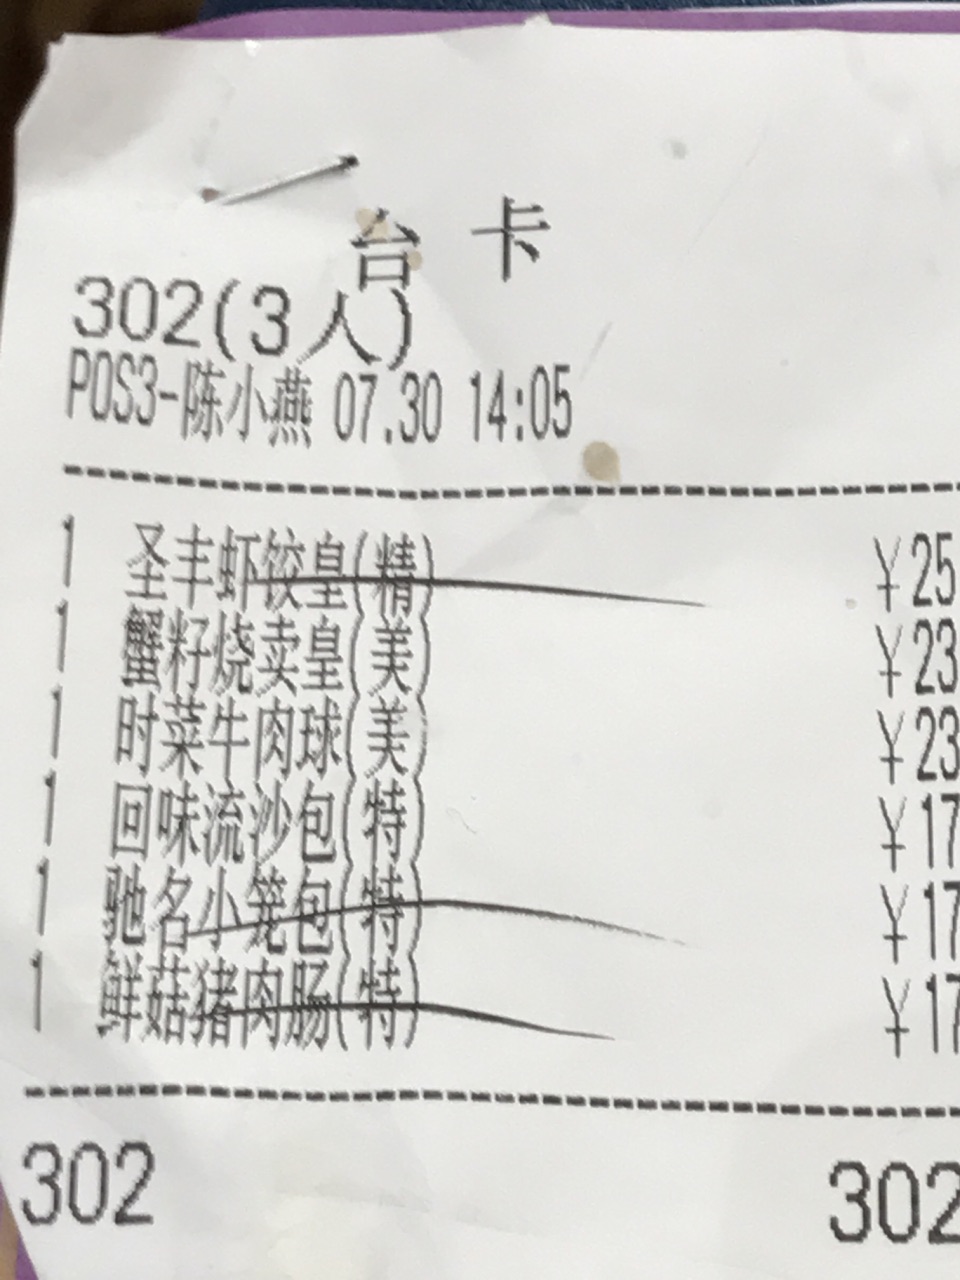 台 卡
302(3人)
POS3-陈小燕 07.30 14:05
1 圣丰虾饺皇(精) ¥25
1 蟹籽烧卖皇(美) ¥23
1 时菜牛肉球(美) ¥23
1 回味流沙包(特) ¥17
1 驰名小笼包(特) ¥17
1 鲜菇猪肉肠(特) ¥17
302 302